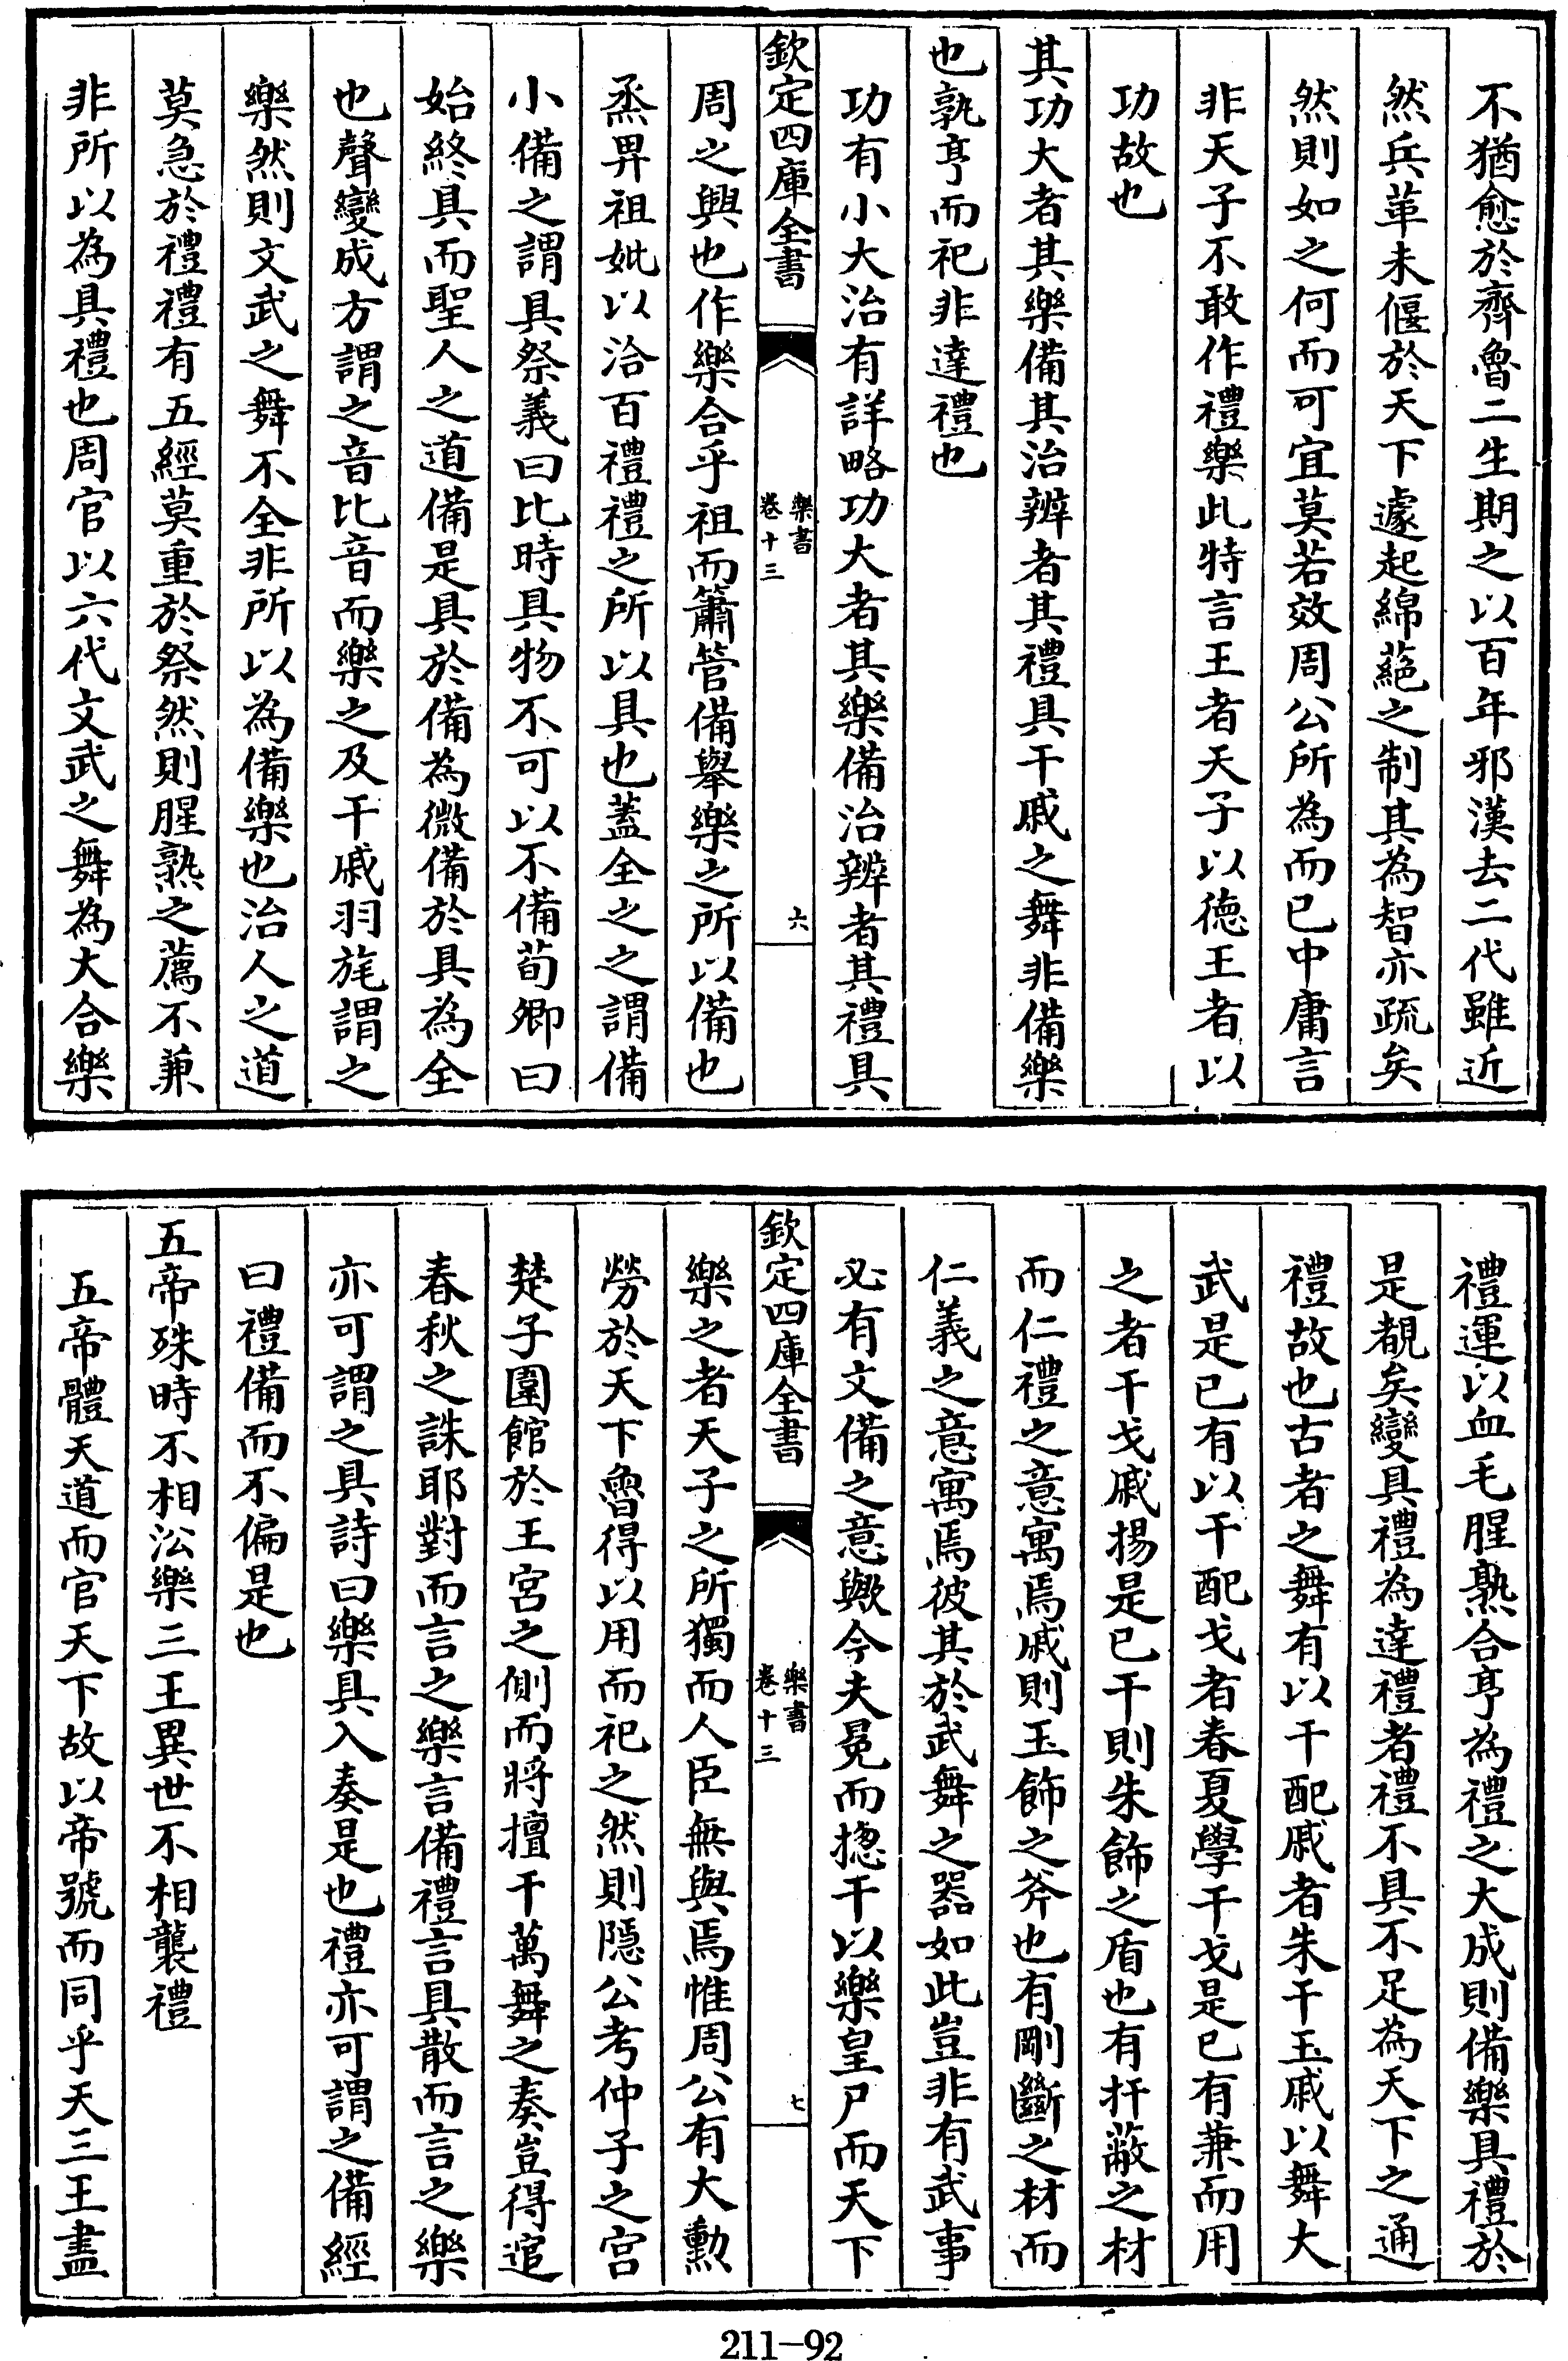 不猶愈於齊魯二生期之以百年邪漢去二代雖近
然兵革未偃於天下遽起綿蕝之制其為智亦疏矣
然則如之何而可宜莫若效周公所為而已中庸言
非天子不敢作禮樂此特言王者天子以德王者以
功故也
其功大者其樂備其治辨者其禮具干戚之舞非備樂
也孰亨而祀非達禮也
功有小大治有詳略功大者其樂備治辨者其禮具
欽定四庫全書
樂書
卷十三
六
周之興也作樂合乎祖而簫管備舉樂之所以備也
烝畀祖妣以洽百禮禮之所以具也蓋全之之謂備
小備之謂具祭義曰比時具物不可以不備荀卿曰
始終具而聖人之道備是具於備為微備於具為全
也聲變成方謂之音比音而樂之及干戚羽旄謂之
樂然則文武之舞不全非所以為備樂也治人之道
莫急於禮禮有五經莫重於祭然則腥熟之薦不兼
非所以為具禮也周官以六代文武之舞為大合樂
禮運以血毛腥熟合亨為禮之大成則備樂具禮於
是覩矣變具禮為達禮者禮不具不足為天下之通
禮故也古者之舞有以干配戚者朱干玉戚以舞大
武是已有以干配戈者春夏學干戈是已有兼而用
之者干戈戚揚是已干則朱飾之盾也有扞蔽之材
而仁禮之意寓焉戚則玉飾之斧也有剛斷之材而
仁義之意寓焉彼其於武舞之器如此豈非有武事
必有文備之意歟今夫冕而揔干以樂皇尸而天下
欽定四庫全書
樂書
卷十三
七
樂之者天子之所獨而人臣無與焉惟周公有大勲
勞於天下魯得以用而祀之然則隱公考仲子之宫
楚子圍館於王宮之側而將擅干萬舞之奏豈得逭
春秋之誅耶對而言之樂言備禮言具散而言之樂
亦可謂之具詩曰樂具入奏是也禮亦可謂之備經
曰禮備而不偏是也
五帝殊時不相沿樂三王異世不相襲禮
五帝體天道而官天下故以帝號而同乎天三王盡
211-92